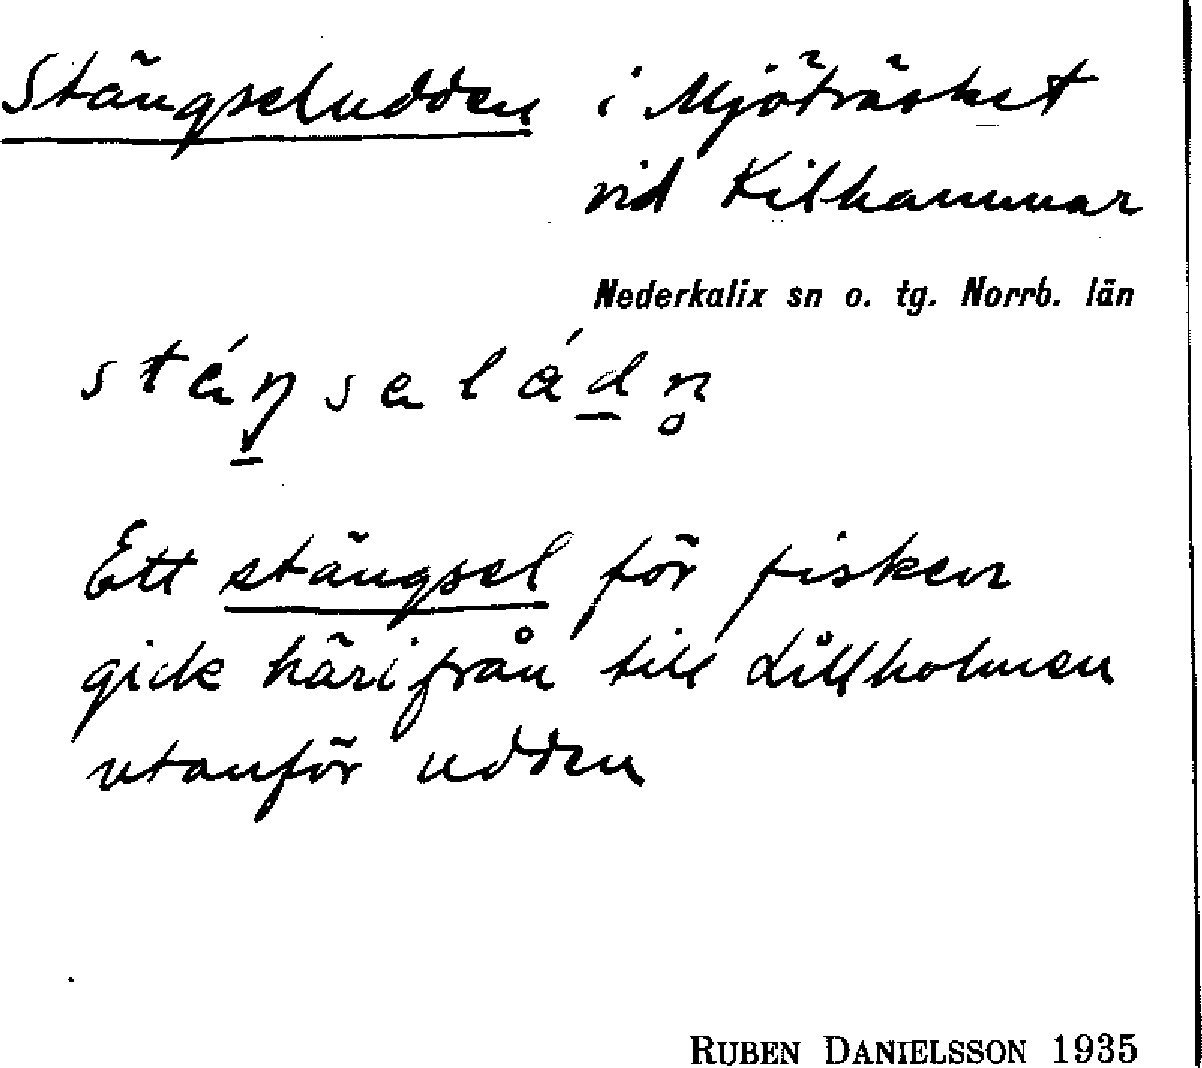 Stängseludden i Mjöträsket
vid Kilhammar
Nederkalix sn o. tg. Norrb. län
Ett stängsel för fisken
gick härifrån till Lillholmen
utanför udden
RUBEN DANIELSSON 1935